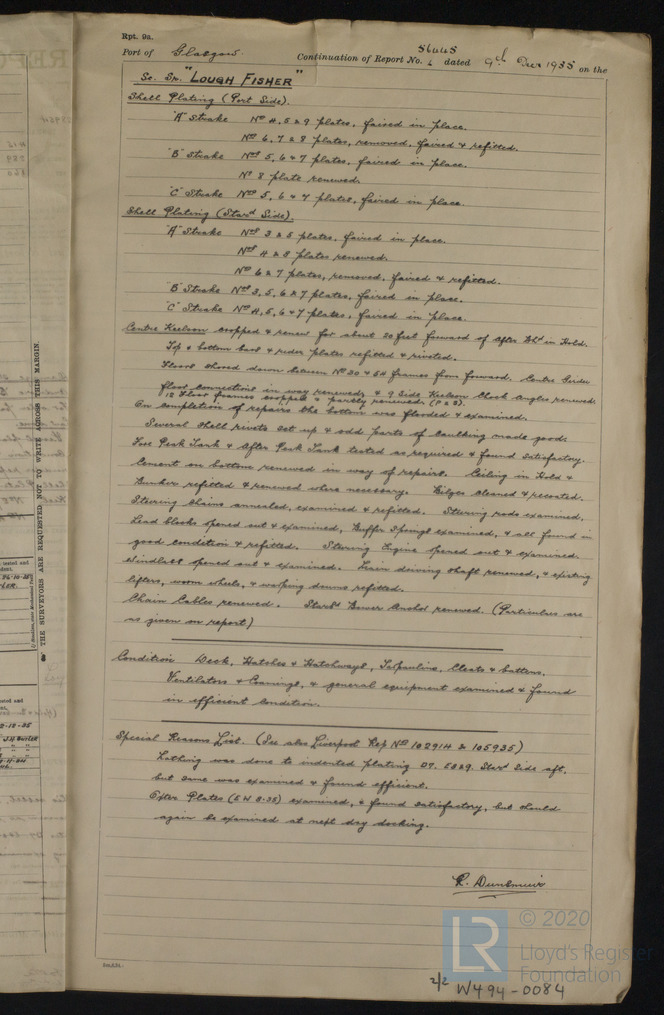 Rpt. 9a.
Port of Glasgow Continuation of Report No. dated 9th Dec 1935 on the
Sc. Sr. "LOUGH FISHER"
Shell Plating (Port Side).
"A" Strake Nos 4, 5 & 9 plates, faired in place.
Nos 6, 7 & 8 plates, removed, faired & refitted.
"B" Strake Nos 5, 6 & 7 plates, faired in place.
No 8 plate renewed.
"C" Strake Nos 5, 6 & 7 plates, faired in place.
Shell Plating (Starbd Side).
"A" Strake Nos 3 & 5 plates, faired in place.
Nos 4 & 8 plates renewed.
Nos 6 & 7 plates, removed, faired & refitted.
"B" Strake Nos 3, 5, 6 & 7 plates, faired in place.
"C" Strake Nos 4, 5, 6 & 7 plates, faired in place.
Centre Keelson cropped & renew for about 20 feet forward of after Bhd in Hold.
Top & bottom bars & rider plates refitted & riveted.
Floors shored down between Nos 30 & 54 frames from forward. Centre Girder
floor connections in way renewed, & 9 Side Keelson Chock angles renewed.
12 Floor frames cropped & partly renewed (P & S).
On completion of repairs the bottom was flooded & examined.
Several shell rivets set up & odd parts of caulking made good.
Fore Peak Tank & After Peak Tank tested as required & found satisfactory.
Cement on bottom renewed in way of repairs. Ceiling in Hold &
Bunker refitted & renewed where necessary. Bilges cleaned & recoated.
Steering Chains annealed, examined & refitted. Steering rods examined.
Lead blocks opened out & examined, Buffer Springs examined, & all found in
good condition & refitted. Steering Engine opened out & examined.
Windlass opened out & examined. Main driving shaft renewed, & existing
lifters, worm wheels, & warping drums refitted.
Chain Cables renewed. Starbd Bower Anchor renewed. (Particulars are
as given on report)
Condition Deck, Hatches & Hatchways, Tarpaulins, Cleats & battens,
Ventilators & Coamings, & general equipment examined & found
in efficient condition.
Special Reasons List. (See also Liverpool Rep Nos 102914 & 105935)
Nothing was done to indented plating D7. E8&9. Starbd Side aft,
but same was examined & found efficient.
Oxter Plates (5 W 8.35) examined, & found satisfactory, but should
again be examined at next dry docking.
R. Dunsmuir
THE SURVEYORS ARE REQUESTED NOT TO WRITE ACROSS THIS MARGIN.
LR © 2020
Lloyd's Register
Foundation
2/2 W494-0084